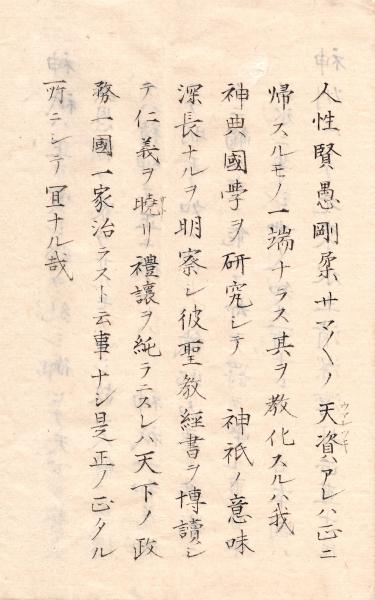 人性賢愚剛柔サマ〱ノ天資アレハ正ニ
ウマレツキ
帰スルモノ一端ナラス其ヲ教化スルハ我
神典國学ヲ研究シテ 神祇ノ意味
深長ナルヲ明察シ彼聖教經書ヲ博讀シ
テ仁義ヲ曉リ禮讓ヲ純ラニスレハ天下ノ政
務一國一家治ラスト云事ナシ是正ノ正タル
所ニシテ冝ナル哉